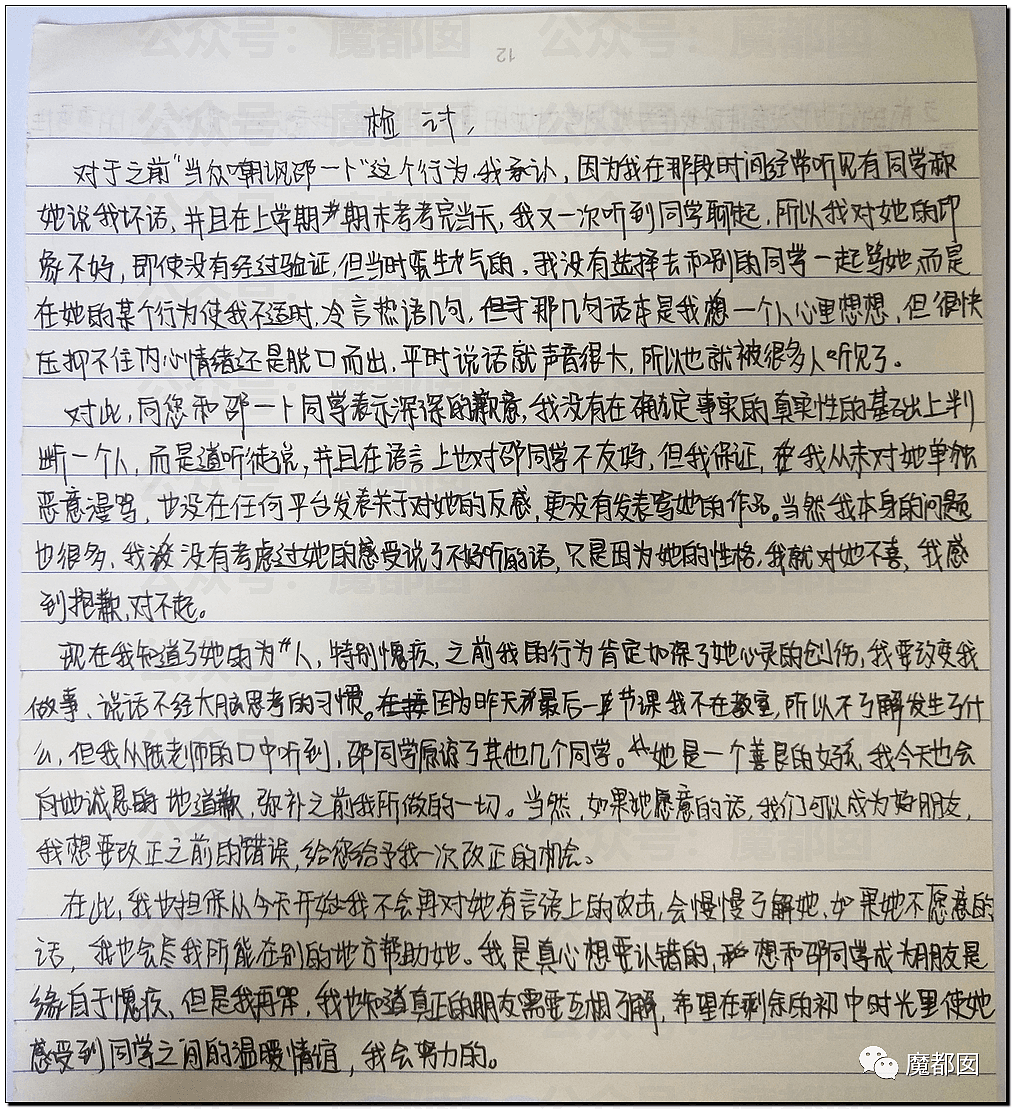 公众号：魔都囡 公众号：魔都囡
12
检讨，
对于之前"当众嘲讽邵一卜"这个行为，我承认，因为我在那段时间经常听见有同学称
她说我坏话，并且在上学期期末考考完当天，我又一次听到同学聊起，所以我对她的印
象不好，即使没有经过验证，但当时蛮生气的，我没有选择去和别的同学一起骂她，而是
在她的某个行为使我不适时，冷言热语几句，那几句话本是我想一个人心里想想，但很快
压抑不住内心情绪还是脱口而出，平时说话就声音很大，所以也就被很多人听见了。
对此，向您和邵一卜同学表示深深的歉意，我没有在确定事实的真实性的基础上判
断一个人，而是道听徒说，并且在语言上也对邵同学不友好，但我保证，我从未对她单独
恶意谩骂，也没在任何平台发表关于对她的反感，更没有发表骂她的作品。当然我本身的问题
也很多，我没有考虑过她的感受说了不好听的话，只是因为她的性格，我就对她不喜，我感
到抱歉，对不起。
现在我知道了她的为人，特别愧疚，之前我的行为肯定加深了她心灵的创伤，我要改变我
做事、说话不经大脑思考的习惯。因为昨天最后一节课我不在教室，所以不了解发生了什
么，但我从陆老师的口中听到，邵同学原谅了其他几个同学。她是一个善良的女孩，我今天也会
向她诚恳的地道歉，弥补之前我所做的一切。当然，如果她愿意的话，我们可以成为好朋友，
我想要改正之前的错误，给您给予我一次改正的机会。
在此，我也担保从今天开始我不会再对她有言语上的攻击，会慢慢了解她，如果她不愿意的
话，我也会尽我所能在别的地方帮助她。我是真心想要认错的，想和邵同学成为朋友是
缘自于愧疚，但是我，我也知道真正的朋友需要互相了解，希望在剩余的初中时光里使她
感受到同学之间的温暖情谊，我会努力的。
魔都囡